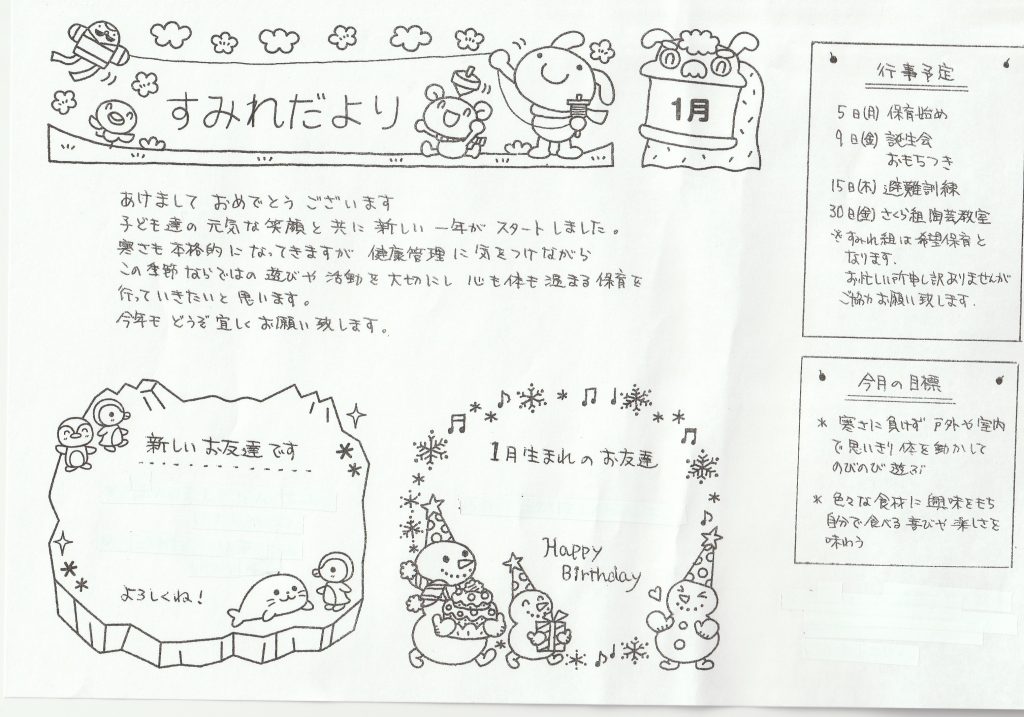 すみれだより
1月
あけまして おめでとう ございます
子ども達の 元気な笑顔と共に 新しい一年が スタートしました。
寒さも本格的になってきますが 健康管理に気をつけながら
この季節ならではの 遊びや 活動を大切にし 心も体も温まる保育を
行っていきたいと思います。
今年も どうぞ宜しくお願い致します。
新しいお友達です
よろしくね!
1月生まれのお友達
Happy
Birthday
行事予定
5日(月) 保育始め
9日(金) 誕生会
おもちつき
15日(木) 避難訓練
30日(金) さくら組 陶芸教室
※すみれ組は希望保育と
なります.
お忙しい所申し訳ありませんが
ご協力お願い致します.
今月の目標
* 寒さに負けず 戸外や室内
で思いきり体を動かして
のびのび遊ぶ
* 色々な食材に興味をもち
自分で食べる喜びや楽しさを
味わう